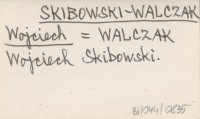 SKIBOWSKI-WALCZAK
Wojciech = WALCZAK
Wojciech Skibowski.